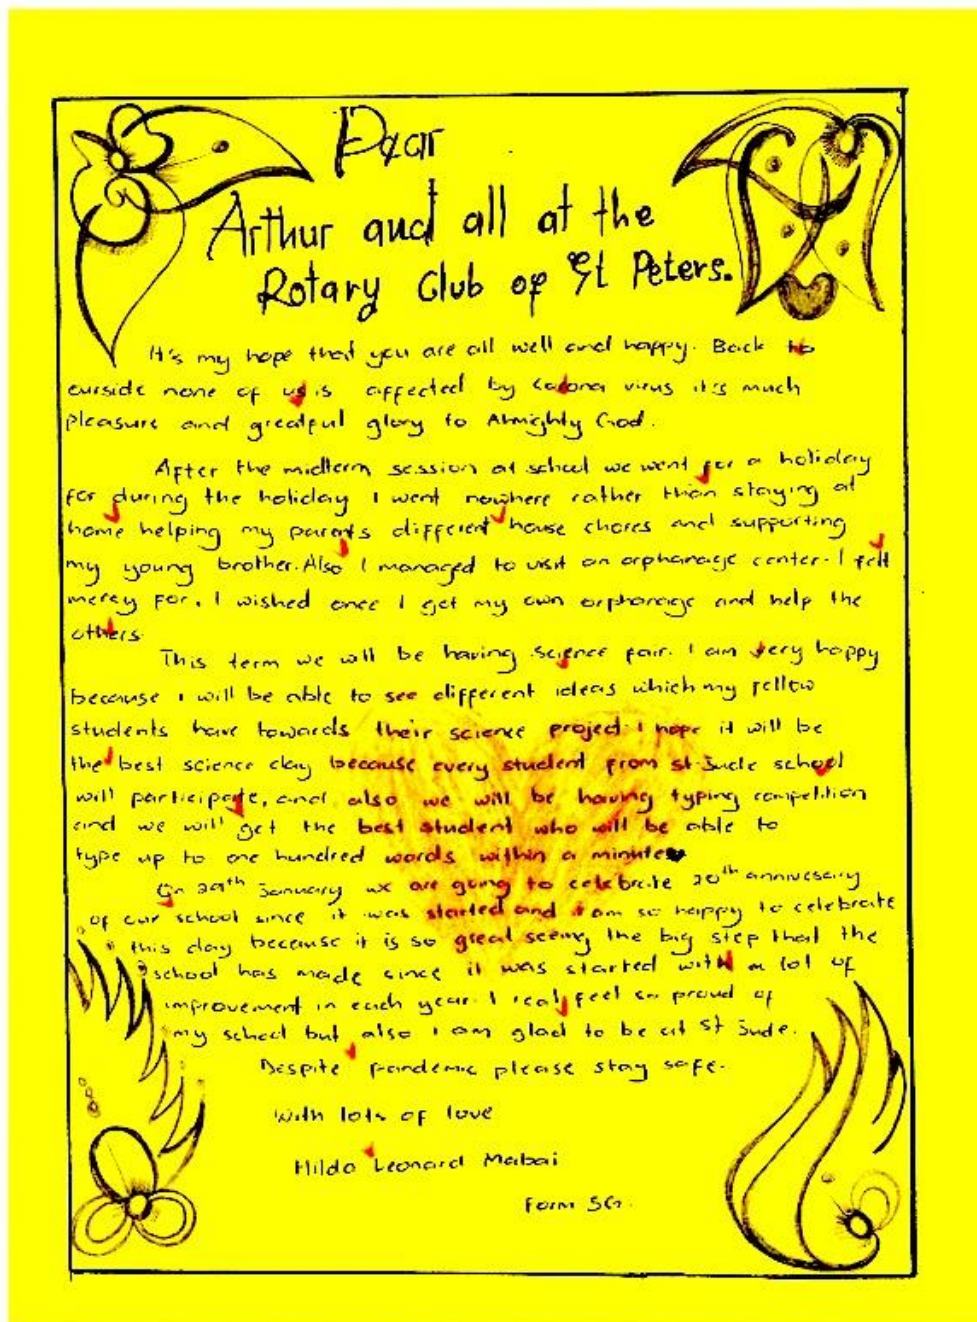 Dear
Arthur and all at the
Rotary Club of St Peters.
It's my hope that you are all well and happy. Back to
ourside none of us is affected by Corona virus it's much
pleasure and greatful glory to Almighty God.
After the midterm session at school we went for a holiday
for during the holiday I went nowhere rather than staying at
home helping my parents different house chores and supporting
my young brother. Also I managed to visit an orphanage center. I felt
mercy for, I wished once I get my own orphanage and help the
others.
This term we will be having science fair. I am very happy
because I will be able to see different ideas which my fellow
students have towards their science project. I hope it will be
the best science day because every student from st. Jude school
will participate, and also we will be having typing competition
and we will get the best student who will be able to
type up to one hundred words within a minute
On 29th January we are going to celebrate 20th annivesary
of our school since it was started and I am so happy to celebrate
this day because it is so great seeing the big step that the
school has made since it was started with a lot of
improvement in each year. I realy feel so proud of
my school but also I am glad to be at st Jude.
Despite pandemic please stay safe.
With lots of love
Hilda Leonard Mabai
Form 5G.